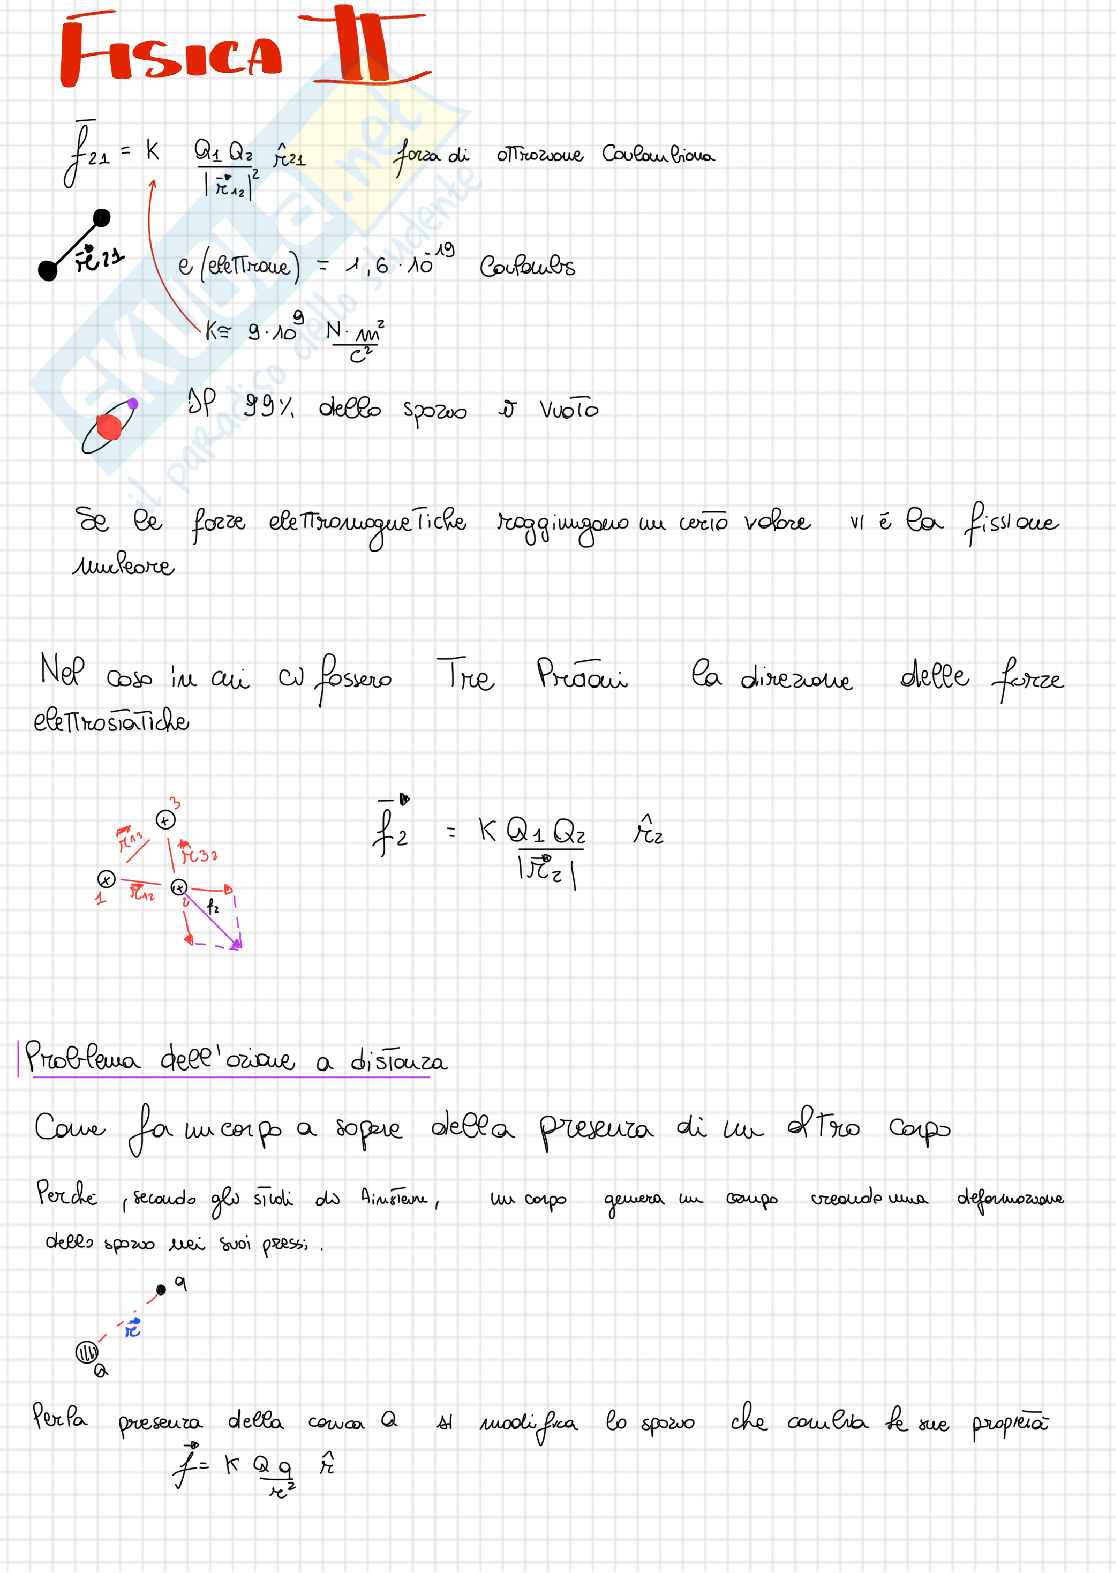 FISICA II
f̄₂₁ = K Q₁ Q₂ / |r⃗₁₂|² r̂₂₁ forza di attrazione Coulombiana
r⃗₂₁
e (elettrone) = 1,6 · 10⁻¹⁹ Coulombs
K ≅ 9 · 10⁹ N · m² / C²
Il 99% dello spazio è vuoto
Se le forze elettromagnetiche raggiungono un certo valore vi è la fissione
nucleare
Nel caso in cui ci fossero Tre Protoni la direzione delle forze
elettrostatiche
3
r⃗₁₃
r⃗₃₂
1
r⃗₁₂
2
f₂
f⃗₂ = K Q₁ Q₂ / |r⃗₂| r̂₂
Problema dell'azione a distanza
Come fa un corpo a sapere della presenza di un altro corpo
Perché, secondo gli studi di Ainstein, un corpo genera un campo creando una deformazione
dello spazio nei suoi pressi.
q
r⃗
Q
Per la presenza della carica Q si modifica lo spazio che cambia le sue proprietà
f⃗ = K Q q / r² r̂
SKUOLA.net
il paradiso dello studente